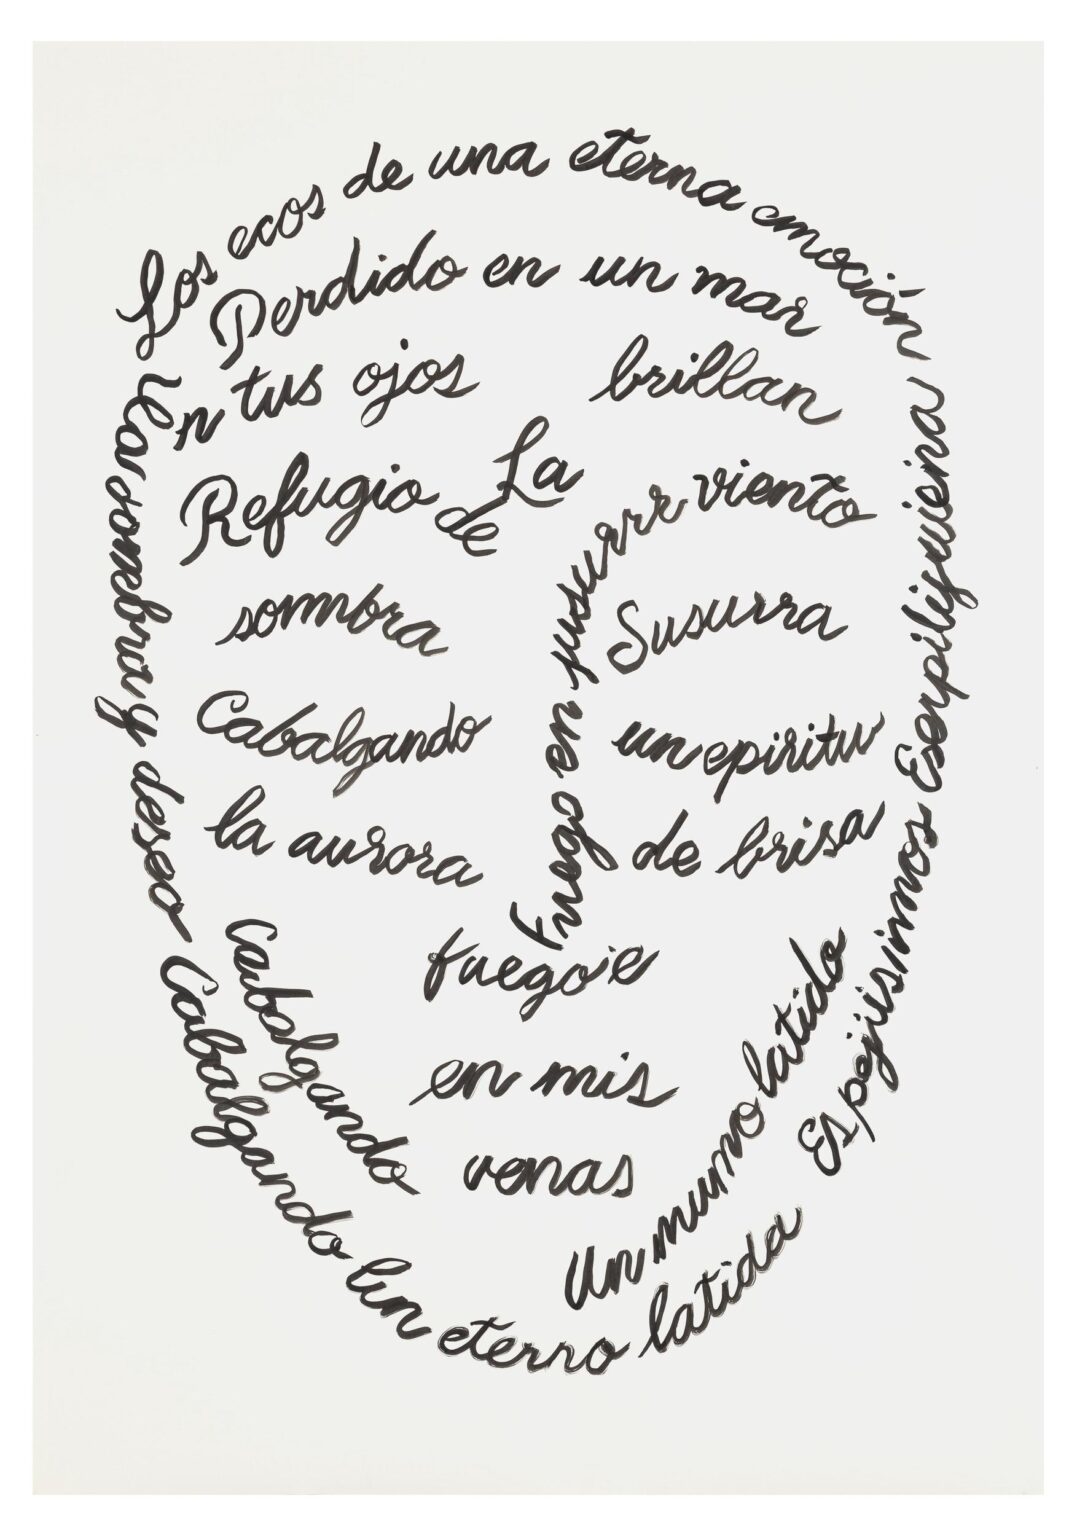 Los ecos de una eterna emoción
Perdido en un mar
En tus ojos brillan
La
Refugio de
viento
sombra
Susurra
Cabalgando
un epiritu
la aurora
de brisa
Fuego en
y deseo
Cabalgando
Cabalgando Un eterno latida
en mis
venas
Un mumo latido